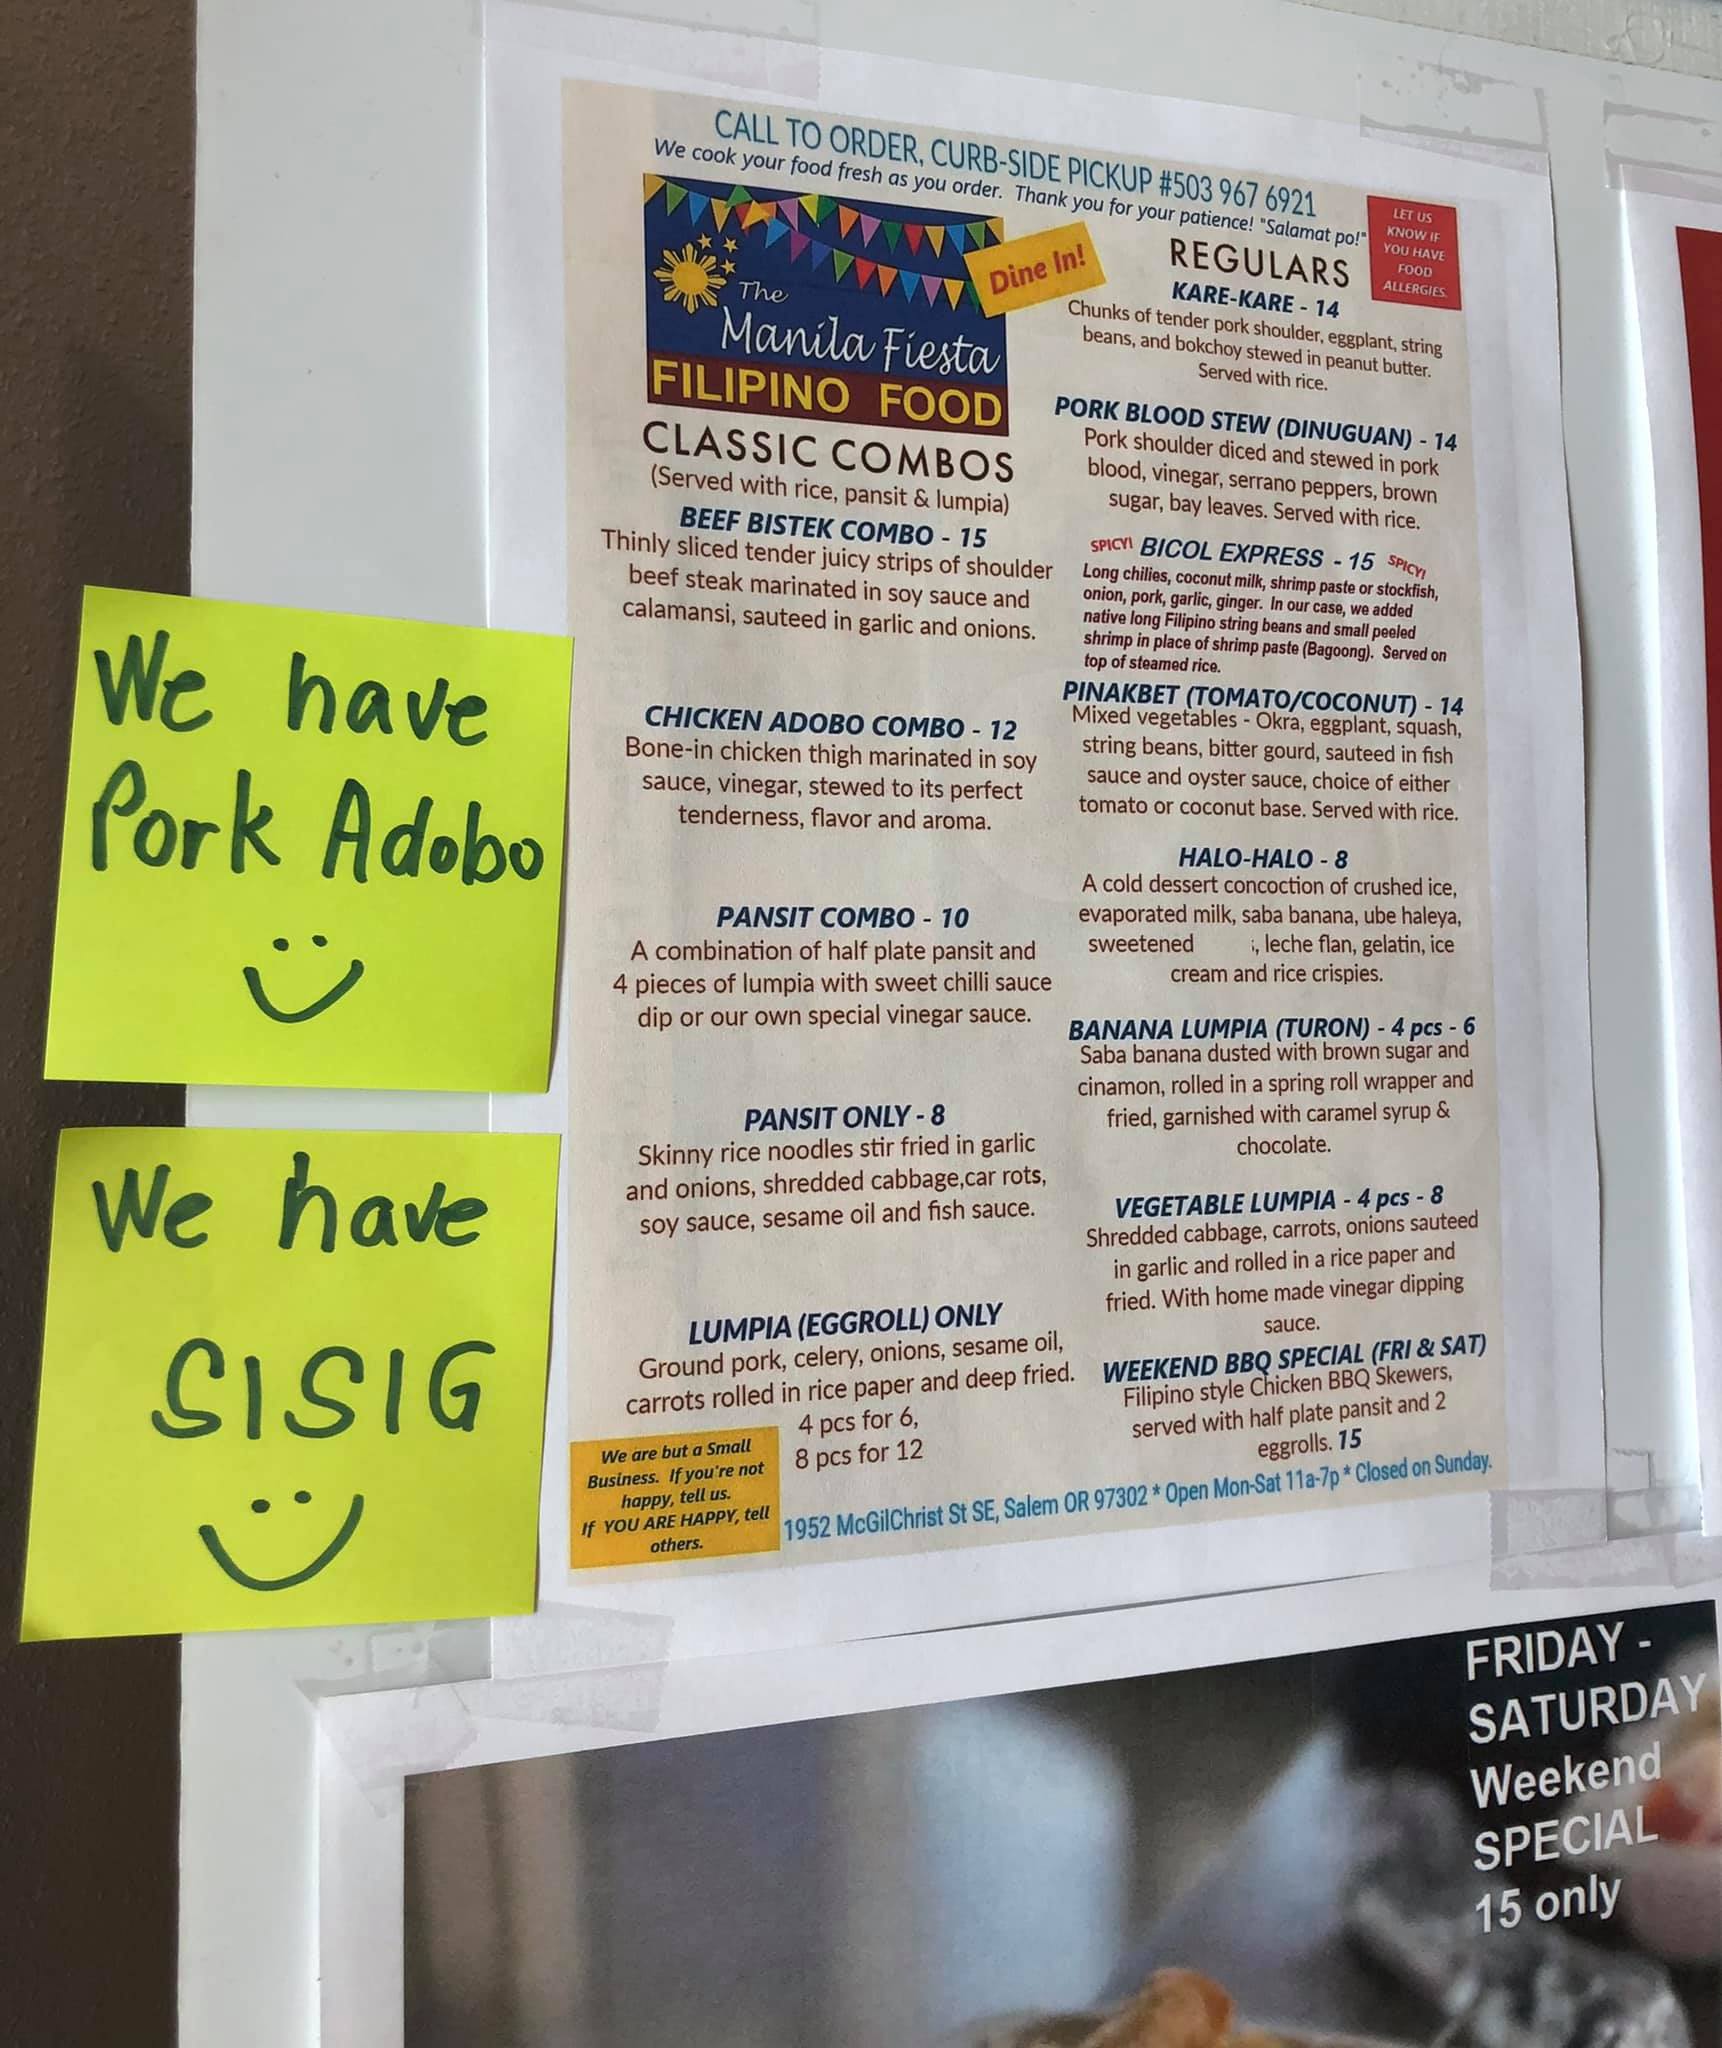 CALL TO ORDER, CURB-SIDE PICKUP #503 967 6921
We cook your food fresh as you order. Thank you for your patience! "Salamat po!"
LET US
KNOW IF
YOU HAVE
FOOD
ALLERGIES.
The
Manila Fiesta
FILIPINO FOOD
Dine In!
CLASSIC COMBOS
(Served with rice, pansit & lumpia)
BEEF BISTEK COMBO - 15
Thinly sliced tender juicy strips of shoulder
beef steak marinated in soy sauce and
calamansi, sauteed in garlic and onions.
CHICKEN ADOBO COMBO - 12
Bone-in chicken thigh marinated in soy
sauce, vinegar, stewed to its perfect
tenderness, flavor and aroma.
PANSIT COMBO - 10
A combination of half plate pansit and
4 pieces of lumpia with sweet chilli sauce
dip or our own special vinegar sauce.
PANSIT ONLY - 8
Skinny rice noodles stir fried in garlic
and onions, shredded cabbage,car rots,
soy sauce, sesame oil and fish sauce.
LUMPIA (EGGROLL) ONLY
Ground pork, celery, onions, sesame oil,
carrots rolled in rice paper and deep fried.
4 pcs for 6,
8 pcs for 12
We are but a Small
Business. If you're not
happy, tell us.
If YOU ARE HAPPY, tell
others.
REGULARS
KARE-KARE - 14
Chunks of tender pork shoulder, eggplant, string
beans, and bokchoy stewed in peanut butter.
Served with rice.
PORK BLOOD STEW (DINUGUAN) - 14
Pork shoulder diced and stewed in pork
blood, vinegar, serrano peppers, brown
sugar, bay leaves. Served with rice.
SPICY! BICOL EXPRESS - 15 SPICY!
Long chilies, coconut milk, shrimp paste or stockfish,
onion, pork, garlic, ginger. In our case, we added
native long Filipino string beans and small peeled
shrimp in place of shrimp paste (Bagoong). Served on
top of steamed rice.
PINAKBET (TOMATO/COCONUT) - 14
Mixed vegetables - Okra, eggplant, squash,
string beans, bitter gourd, sauteed in fish
sauce and oyster sauce, choice of either
tomato or coconut base. Served with rice.
HALO-HALO - 8
A cold dessert concoction of crushed ice,
evaporated milk, saba banana, ube haleya,
sweetened , leche flan, gelatin, ice
cream and rice crispies.
BANANA LUMPIA (TURON) - 4 pcs - 6
Saba banana dusted with brown sugar and
cinamon, rolled in a spring roll wrapper and
fried, garnished with caramel syrup &
chocolate.
VEGETABLE LUMPIA - 4 pcs - 8
Shredded cabbage, carrots, onions sauteed
in garlic and rolled in a rice paper and
fried. With home made vinegar dipping
sauce.
WEEKEND BBQ SPECIAL (FRI & SAT)
Filipino style Chicken BBQ Skewers,
served with half plate pansit and 2
eggrolls. 15
1952 McGilChrist St SE, Salem OR 97302 * Open Mon-Sat 11a-7p * Closed on Sunday.
We have
Pork Adobo
We have
SISIG
FRIDAY -
SATURDAY
Weekend
SPECIAL
15 only